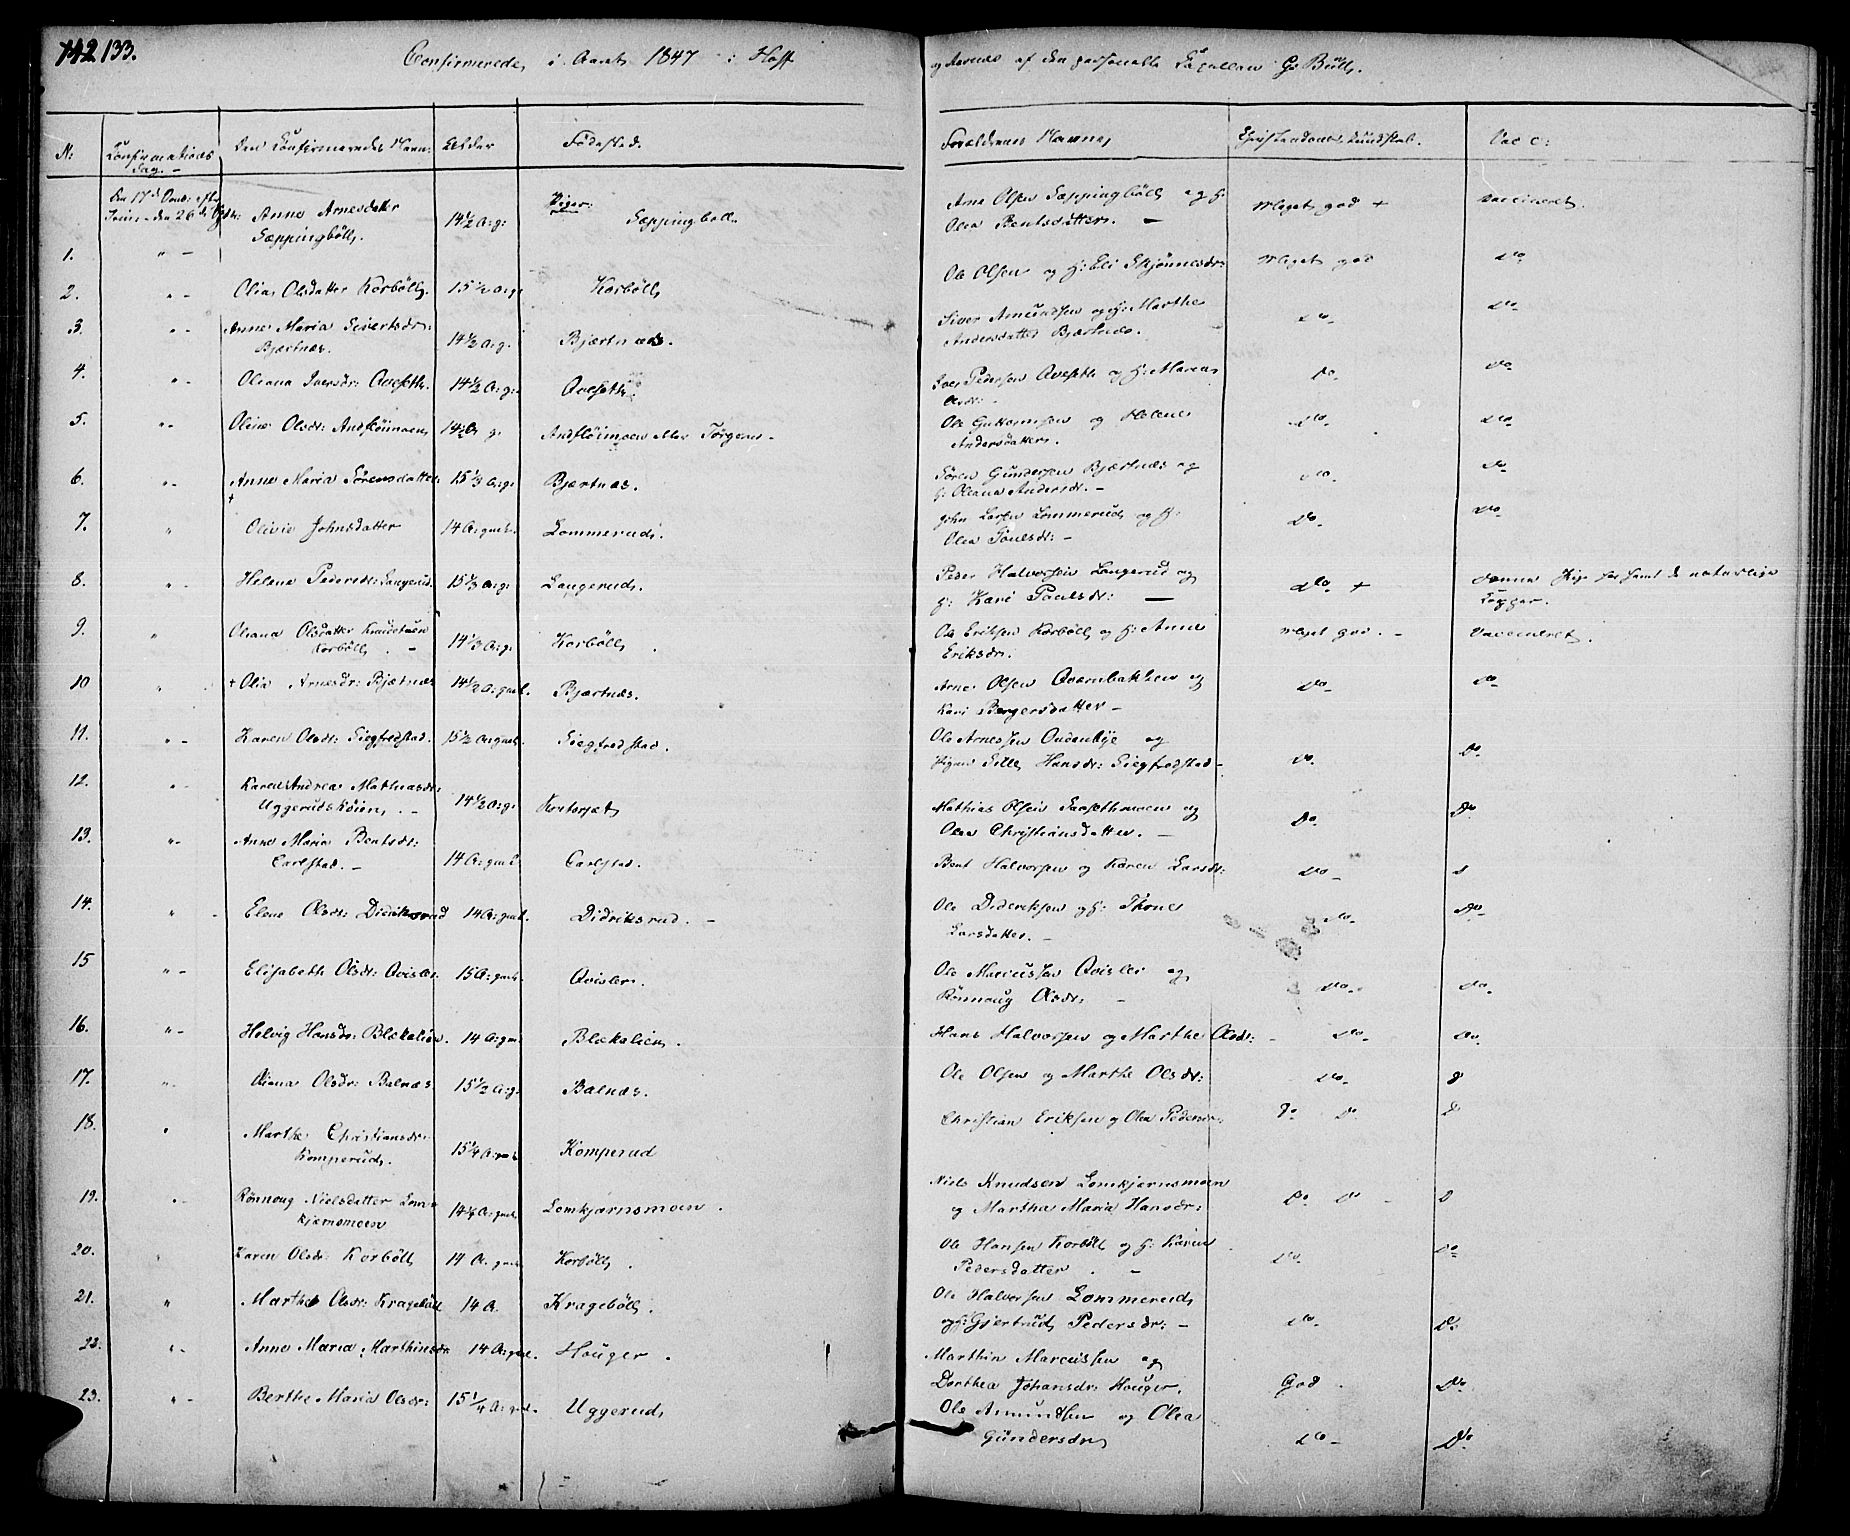 142 133.
Confirmerede i Aaret 1847 i Hoff
og Aasnæs af den personelle Capellan G. Bull.
N:
Confirmations Dag. -
Den Confirmeredes Navn:
Alder
Födested.
Forældrenes Navne,
Christendoms Kundskab.
Vacc:
Den 17de Sönd: efter
Trin: - den 26de Sept:
Piger:
Anne Arnesdatter
Sæppingböll.
14½ A: g:
Sæppingböll.
Arne Olsen Sæppingböll og H:
Olea Bentsdatter. -
Meget god +
vaccineret.
1.
" -
2.
" -
Olia Olsdatter Korböll.
15½ A: g:
Korböll
Ole Olsen og H: Eli Skjönnesdr:
Meget god
do
3.
" -
Anne Maria Sivertsdr:
Bjærtnæs.
14½ A: g.
Bjærtnæs.
Siver Amundsen og H: Marthe
Andersdatter Bjærtnæs.
do
do
4.
" -
Oliana Iversdr: Qveseth.
14½ A: g:
Qveseth.
Iver Pedersen Qveseth og H: Maren
Olsdr: -
Do.
do.
5.
" -
Oline Olsdr: Andflöimoen
14½ A g.
Ole Guttormsen og Helene
Andersdatter.
do.
do.
6.
" -
Anne Maria Sörensdatter
15⅓ A: g:
Bjærtnæs.
Sören Gundersen Bjærtnæs og
H: Oliana Andersdr. -
do.
do.
7.
"
Olivie Johnsdatter
14 A: gml.
Lommerud.
John Larsen Lommerud og H:
Olea Povelsdr: -
Do.
do.
8.
" -
Helene Pedersdr: Langerud.
15⅓ A: g:
Langerud.
Peder Halvorsen Langerud og
H: Kari Paulsdr: -
do. +
denne Pige har havt de naturlige
Kopper.
9.
"
Oliana Olsdatter Knudstuen
Korböll. -
14⅓ A: g:
Korböll.
Ole Eriksen Korböll og H: Anne
Eriksdr.
Meget god. -
Vaccineret.
10
"
+ Olia Arnesdr: Bjærtnæs
14½ A: gml.
Bjærtnæs.
Arne Olsen Qværnbakken og
Kari Bergersdatter -
Do.
do.
11.
" -
Karen Olsdr: Siegfredstad.
15½ A: gml.
Siegfredstad.
Ole Arnessen Oudenbye og
Pigen Sille Hansdr: Siegfredstad -
do.
Do.
12.
" -
Karen Andrea Mathiasdr:
Uggerudskoien. -
14½ A: g:
Mathias Olsen Saasethmoen og
Olea Christiansdatter. -
Do.
Do.
13.
" -
Anne Maria Bentsdr:
Carlstad. -
14 A: gml.
Carlstad.
Bent Halvorsen og Karen Larsdr:
do -
14.
" -
Elene Olsdr: Didriksrud
14 A: gml.
Didriksrud. -
Ole Dideriksen og H: Thone
Larsdatter. -
do.
Do.
15
" -
Elisabeth Olsdr: Qvisler.
15 A: gml.
Qvisler.
Ole Marcussen Qvisler og
Rönnoug Olsdr: -
do.
do.
16.
" -
Helvig Hansdr: Blækalien.
14 A: gml
Blækalien.
Hans Halvorsen og Marthe Olsdr: -
do.
do.
17.
" -
Oliana Olsdr: Balnæs
15½ A: g:
Balnæs.
Ole Olsen og Marthe Olsdr:
do.
d
18.
"
Marthe Christiansdr:
Komperud.
15¼ A: gml
Komperud
Christian Eriksen og Olea Pedersdr:
Do Do
D
19.
" -
Rönnoug Nielsdatter Lom-
kjærnsmoen
14¼ A: gml.
Lomkjærnsmoen.
Niels Knudsen Lomkjærnsmoen
og Marthe Maria Hansdr:
Do Do -
D
20.
"
Karen Olsdr: Korböll
14 A. gml.
Korböll.
Ole Hansen Korböll og H: Karen
Pedersdatter. -
do.
do
21.
"
Marthe Olsdr: Krageböll
14 A.
Krageböll.
Ole Halvorsen Lommerud
og H: Gjertrud Pedersdr: -
do.
D:
22.
" -
Anne Maria Marthinsdr
14 A: gml.
Houger.
Marthin Marcussen og
Dorthea Johansdr: Houger.
God.
Do.
23.
" -
Berthe Maria Olsdr:
15¼ A: gml.
Uggerud,
Ole Amundsen og Olea
Gundersdr,
do -
Do.